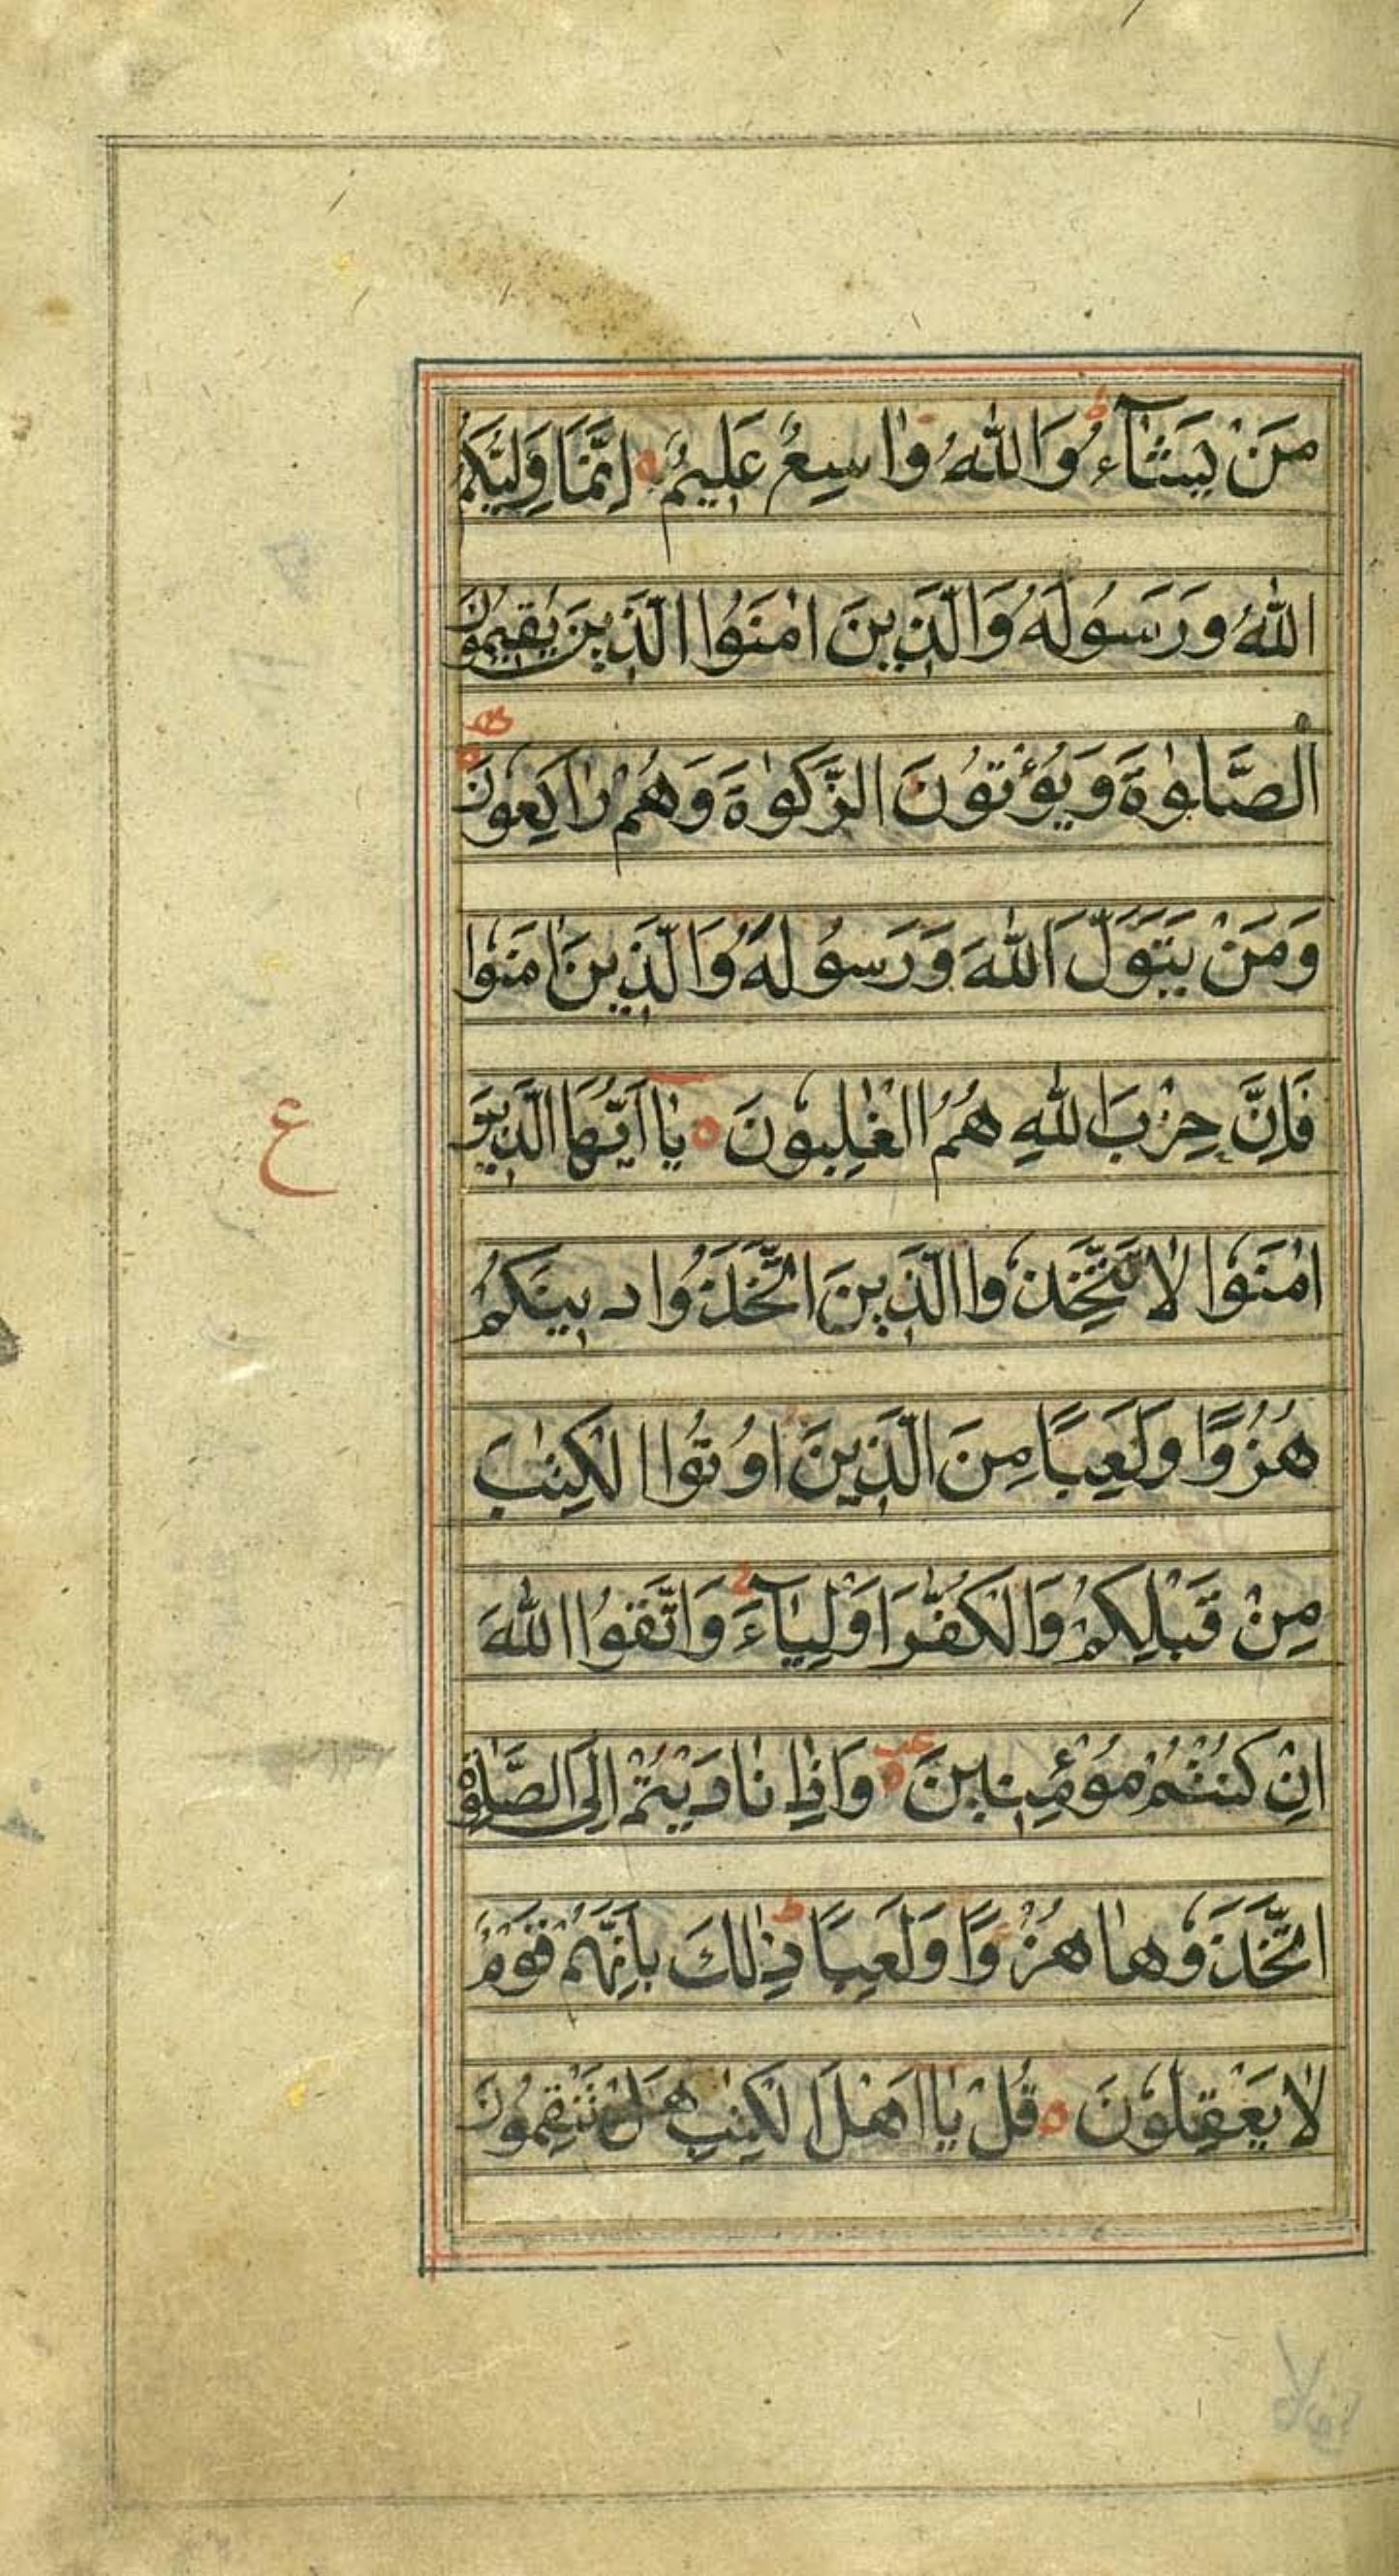 مَنْ يَشَآءُ ط وَاللّٰهُ وٰاسِعٌ عَلِيْمٌ ه اِنَّمَا وَلِيُّكُمُ
اللّٰهُ وَرَسُولُهُ وَالَّذِينَ اٰمَنُوا الَّذِينَ يُقِيمُونَ
الْصَّلٰوةَ وَيُؤْتُونَ الزَّكٰوةَ وَهُمْ رٰاكِعُونَ ه
وَمَنْ يَتَوَلَّ اللّٰهَ وَرَسُولَهُ وَالَّذِينَ اٰمَنُوا
فَاِنَّ حِزْبَ اللّٰهِ هُمُ الْغٰلِبُونَ ه يٰااَيُّهَا الَّذِينَ
ع
اٰمَنُوا لٰا تَتَّخِذُوا الَّذِينَ اتَّخَذُوا دِينَكُمْ
هُزُوًا وَلَعِبًا مِنَ الَّذِينَ اُوتُوا الْكِتٰبَ
مِنْ قَبْلِكُمْ وَالْكُفّٰرَ اَوْلِيٰآءَ ج وَاتَّقُوا اللّٰهَ
اِنْ كُنْتُمْ مُؤْمِنِينَ ه وَاِذٰا نٰادَيْتُمْ اِلَى الصَّلٰوةِ
اتَّخَذُوهٰا هُزُوًا وَلَعِبًا ط ذٰلِكَ بِاَنَّهُمْ قَوْمٌ
لٰا يَعْقِلُونَ ه قُلْ يٰااَهْلَ الْكِتٰبِ هَلْ تَنْقِمُونَ